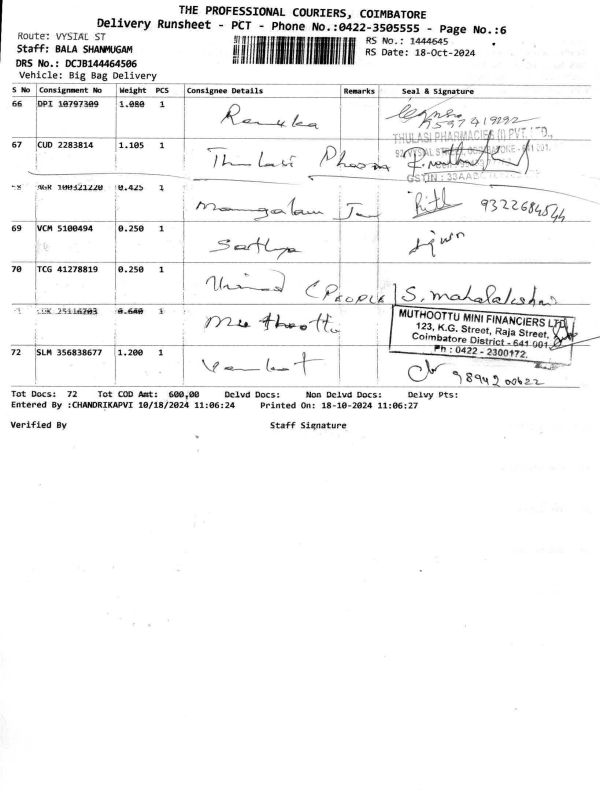 THE PROFESSIONAL COURIERS, COIMBATORE
Delivery Runsheet - PCT - Phone No.:0422-3505555 - Page No.:6
Route: VYSIAL ST
RS No.: 1444645
Staff: BALA SHANMUGAM
RS Date: 18-Oct-2024
DRS No.: DCJB144464506
Vehicle: Big Bag Delivery
S No Consignment No Weight PCS Consignee Details Remarks Seal & Signature
66 DPI 10797309 1.080 1 Renuka
9597419292
THULASI PHARMACIES (I) PVT. LTD.,
67 CUD 2283814 1.105 1 Thulasi Pharma
GSTIN : 33AAB
AGR 100321220 0.425 1 Mangalam 9322684544
69 VCM 5100494 0.250 1 Sathya
70 TCG 41278819 0.250 1 Vinod (PEOPLE) S. Mahalakshmi
25116203 0.640 1 Muthoottu
MUTHOOTTU MINI FINANCIERS LTD
123, K.G. Street, Raja Street,
Coimbatore District - 641 001
Ph : 0422 - 2300172.
72 SLM 356838677 1.200 1 Venkat
9894200622
Tot Docs: 72 Tot COD Amt: 600,00 Delvd Docs: Non Delvd Docs: Delvy Pts:
Entered By :CHANDRIKAPVI 10/18/2024 11:06:24 Printed On: 18-10-2024 11:06:27
Verified By Staff Signature